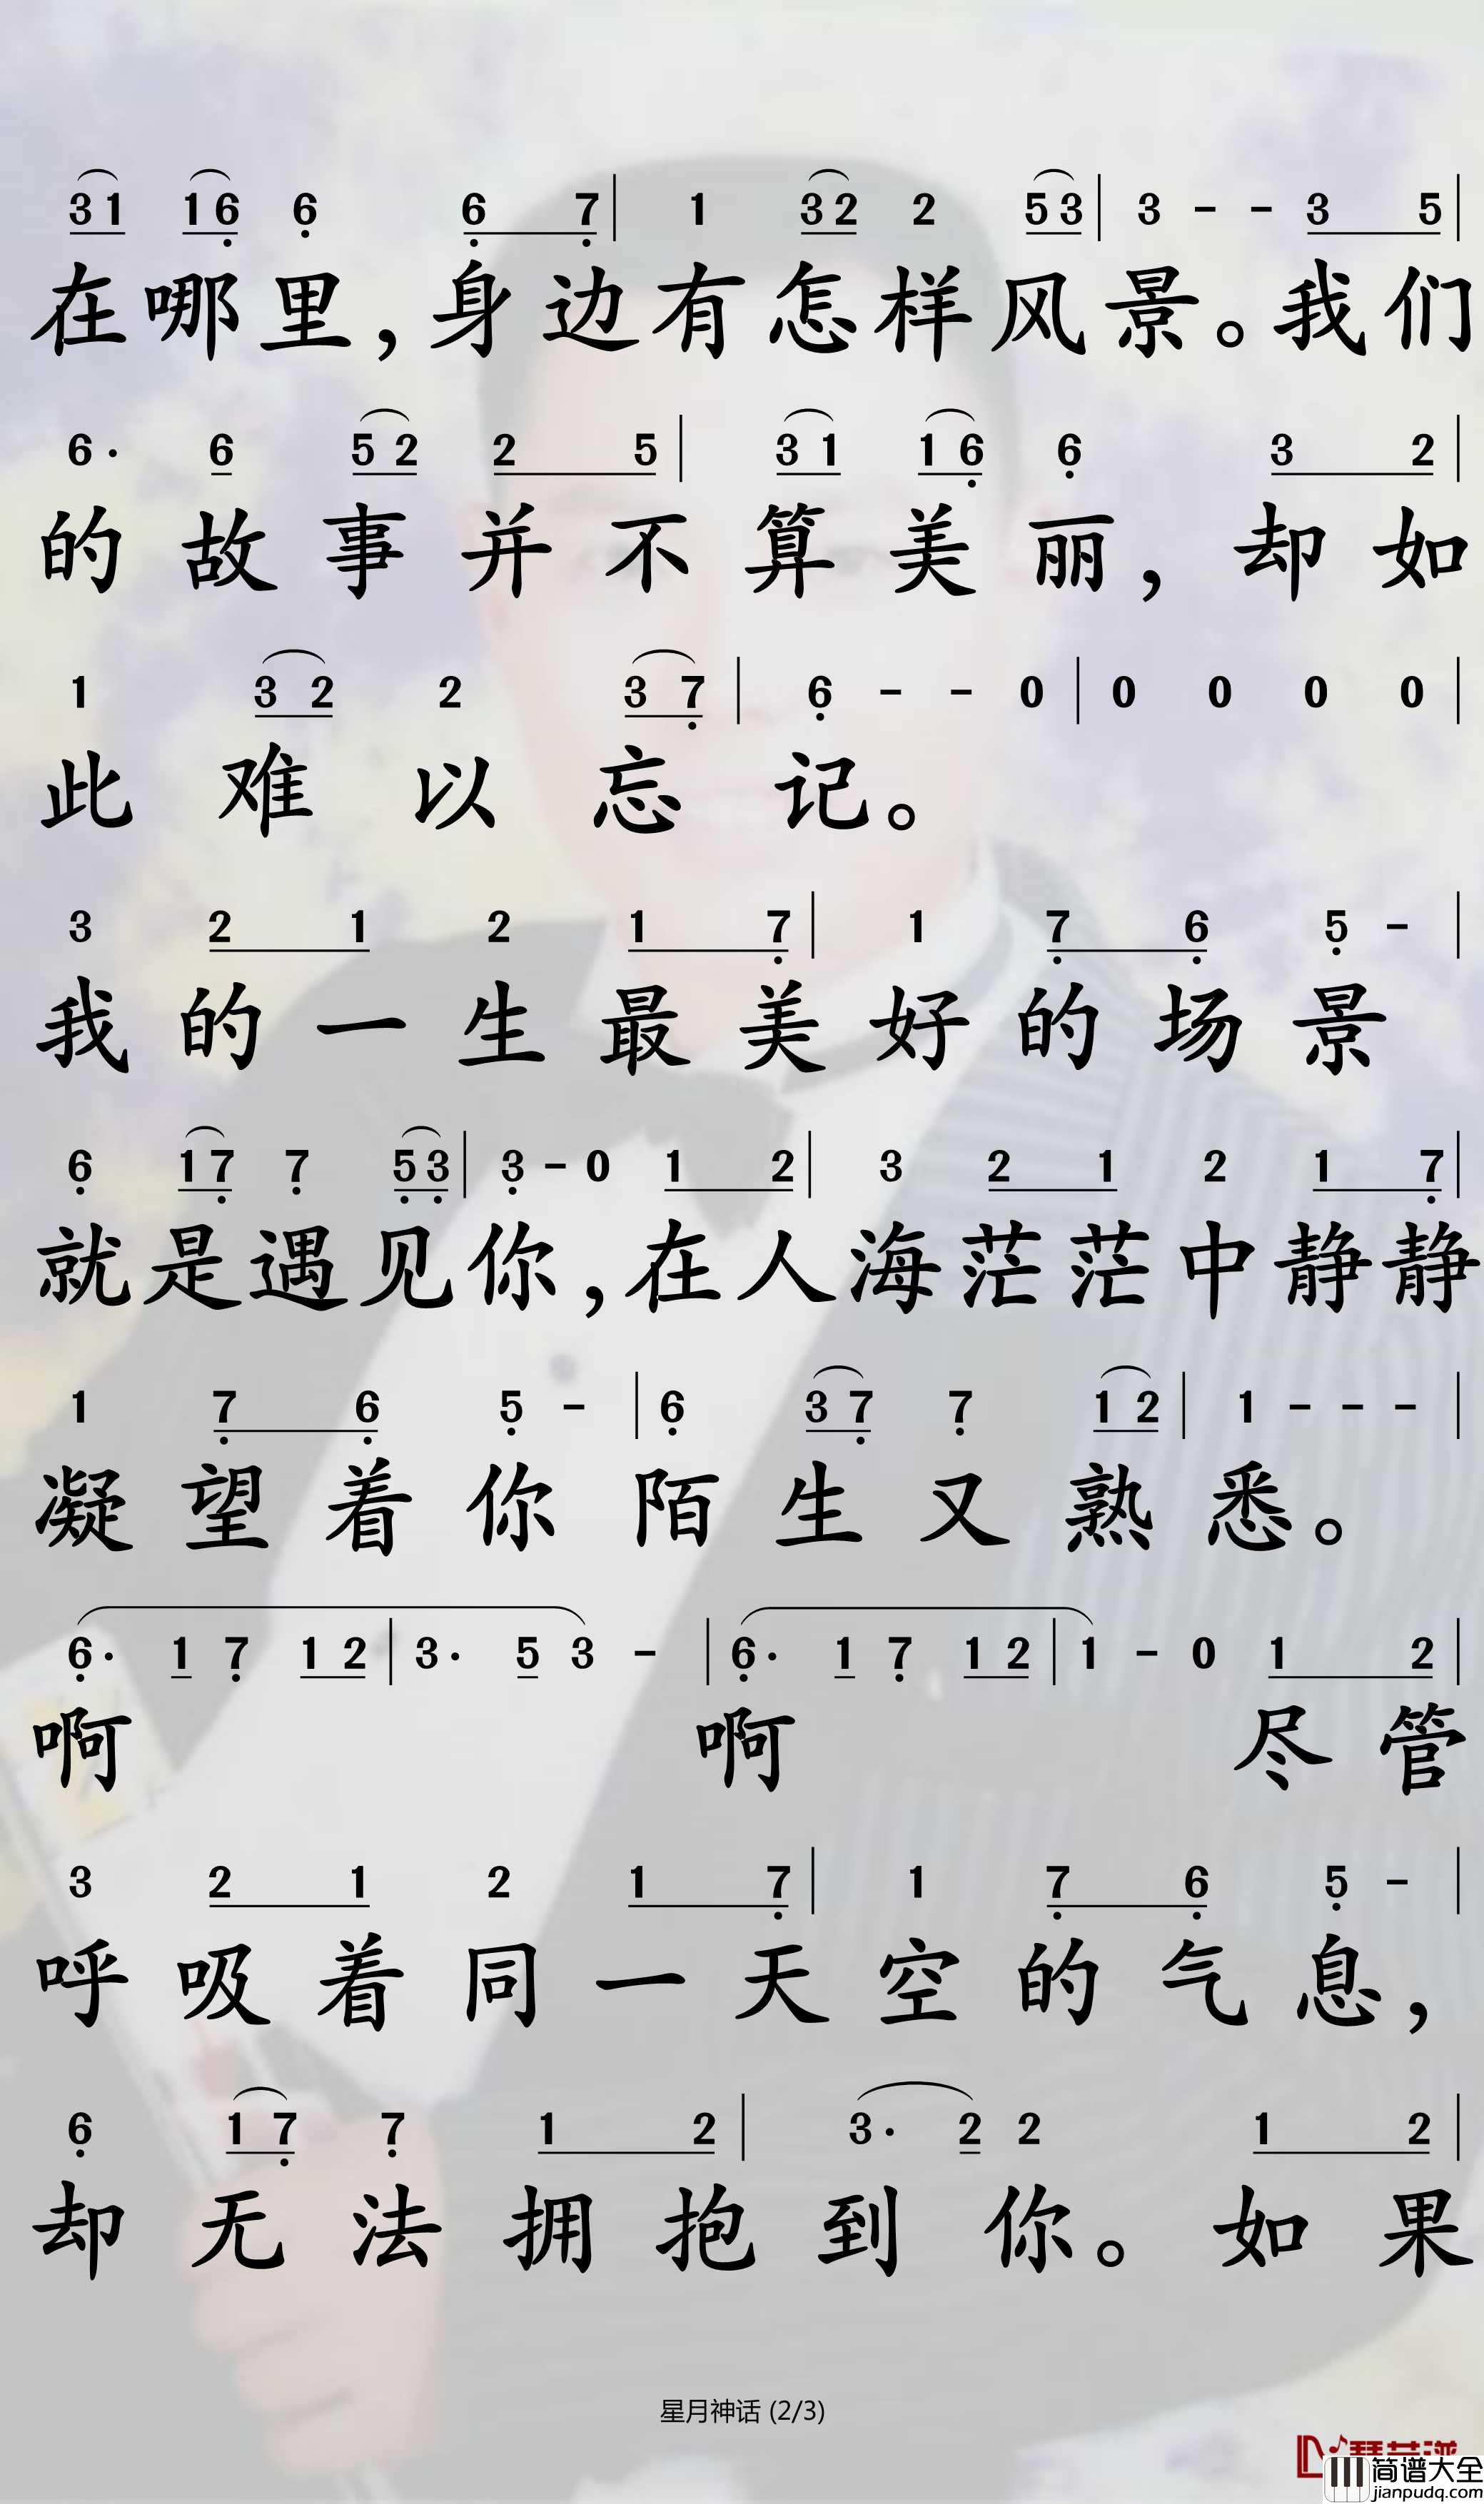 3 1 1 6 6 6 7 | 1 3 2 2 5 3 | 3 - - 3 5 |
在哪里，身边有怎样风景。我们
6· 6 5 2 2 5 | 3 1 1 6 6 3 2 |
的故事并不算美丽，却如
1 3 2 2 3 7 | 6 - - 0 | 0 0 0 0 |
此难以忘记。
3 2 1 2 1 7 | 1 7 6 5 - |
我的一生最美好的场景
6 1 7 7 5 3 | 3 - 0 1 2 | 3 2 1 2 1 7 |
就是遇见你，在人海茫茫中静静
1 7 6 5 - | 6 3 7 7 1 2 | 1 - - - |
凝望着你陌生又熟悉。
6· 1 7 1 2 | 3· 5 3 - | 6· 1 7 1 2 | 1 - 0 1 2 |
啊 啊 尽管
3 2 1 2 1 7 | 1 7 6 5 - |
呼吸着同一天空的气息，
6 1 7 7 1 2 | 3· 2 2 1 2 |
却无法拥抱到你。如果
星月神话 (2/3)
简谱大全
jianpudq.com